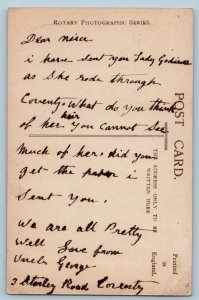 ROTARY PHOTOGRAPHIC SERIES.
Dear niece
i have sent you Lady Godiva
as She rode through
Coventy, What do you think
of her hair You Cannot See
Much of her, did you
get the paper i
Sent you,
We are all Pretty
Well Love from
Uncle George
3 Stanley Road Coventy
POST CARD.
THE ADDRESS ONLY TO BE
WRITTEN HERE
Printed
in
England.